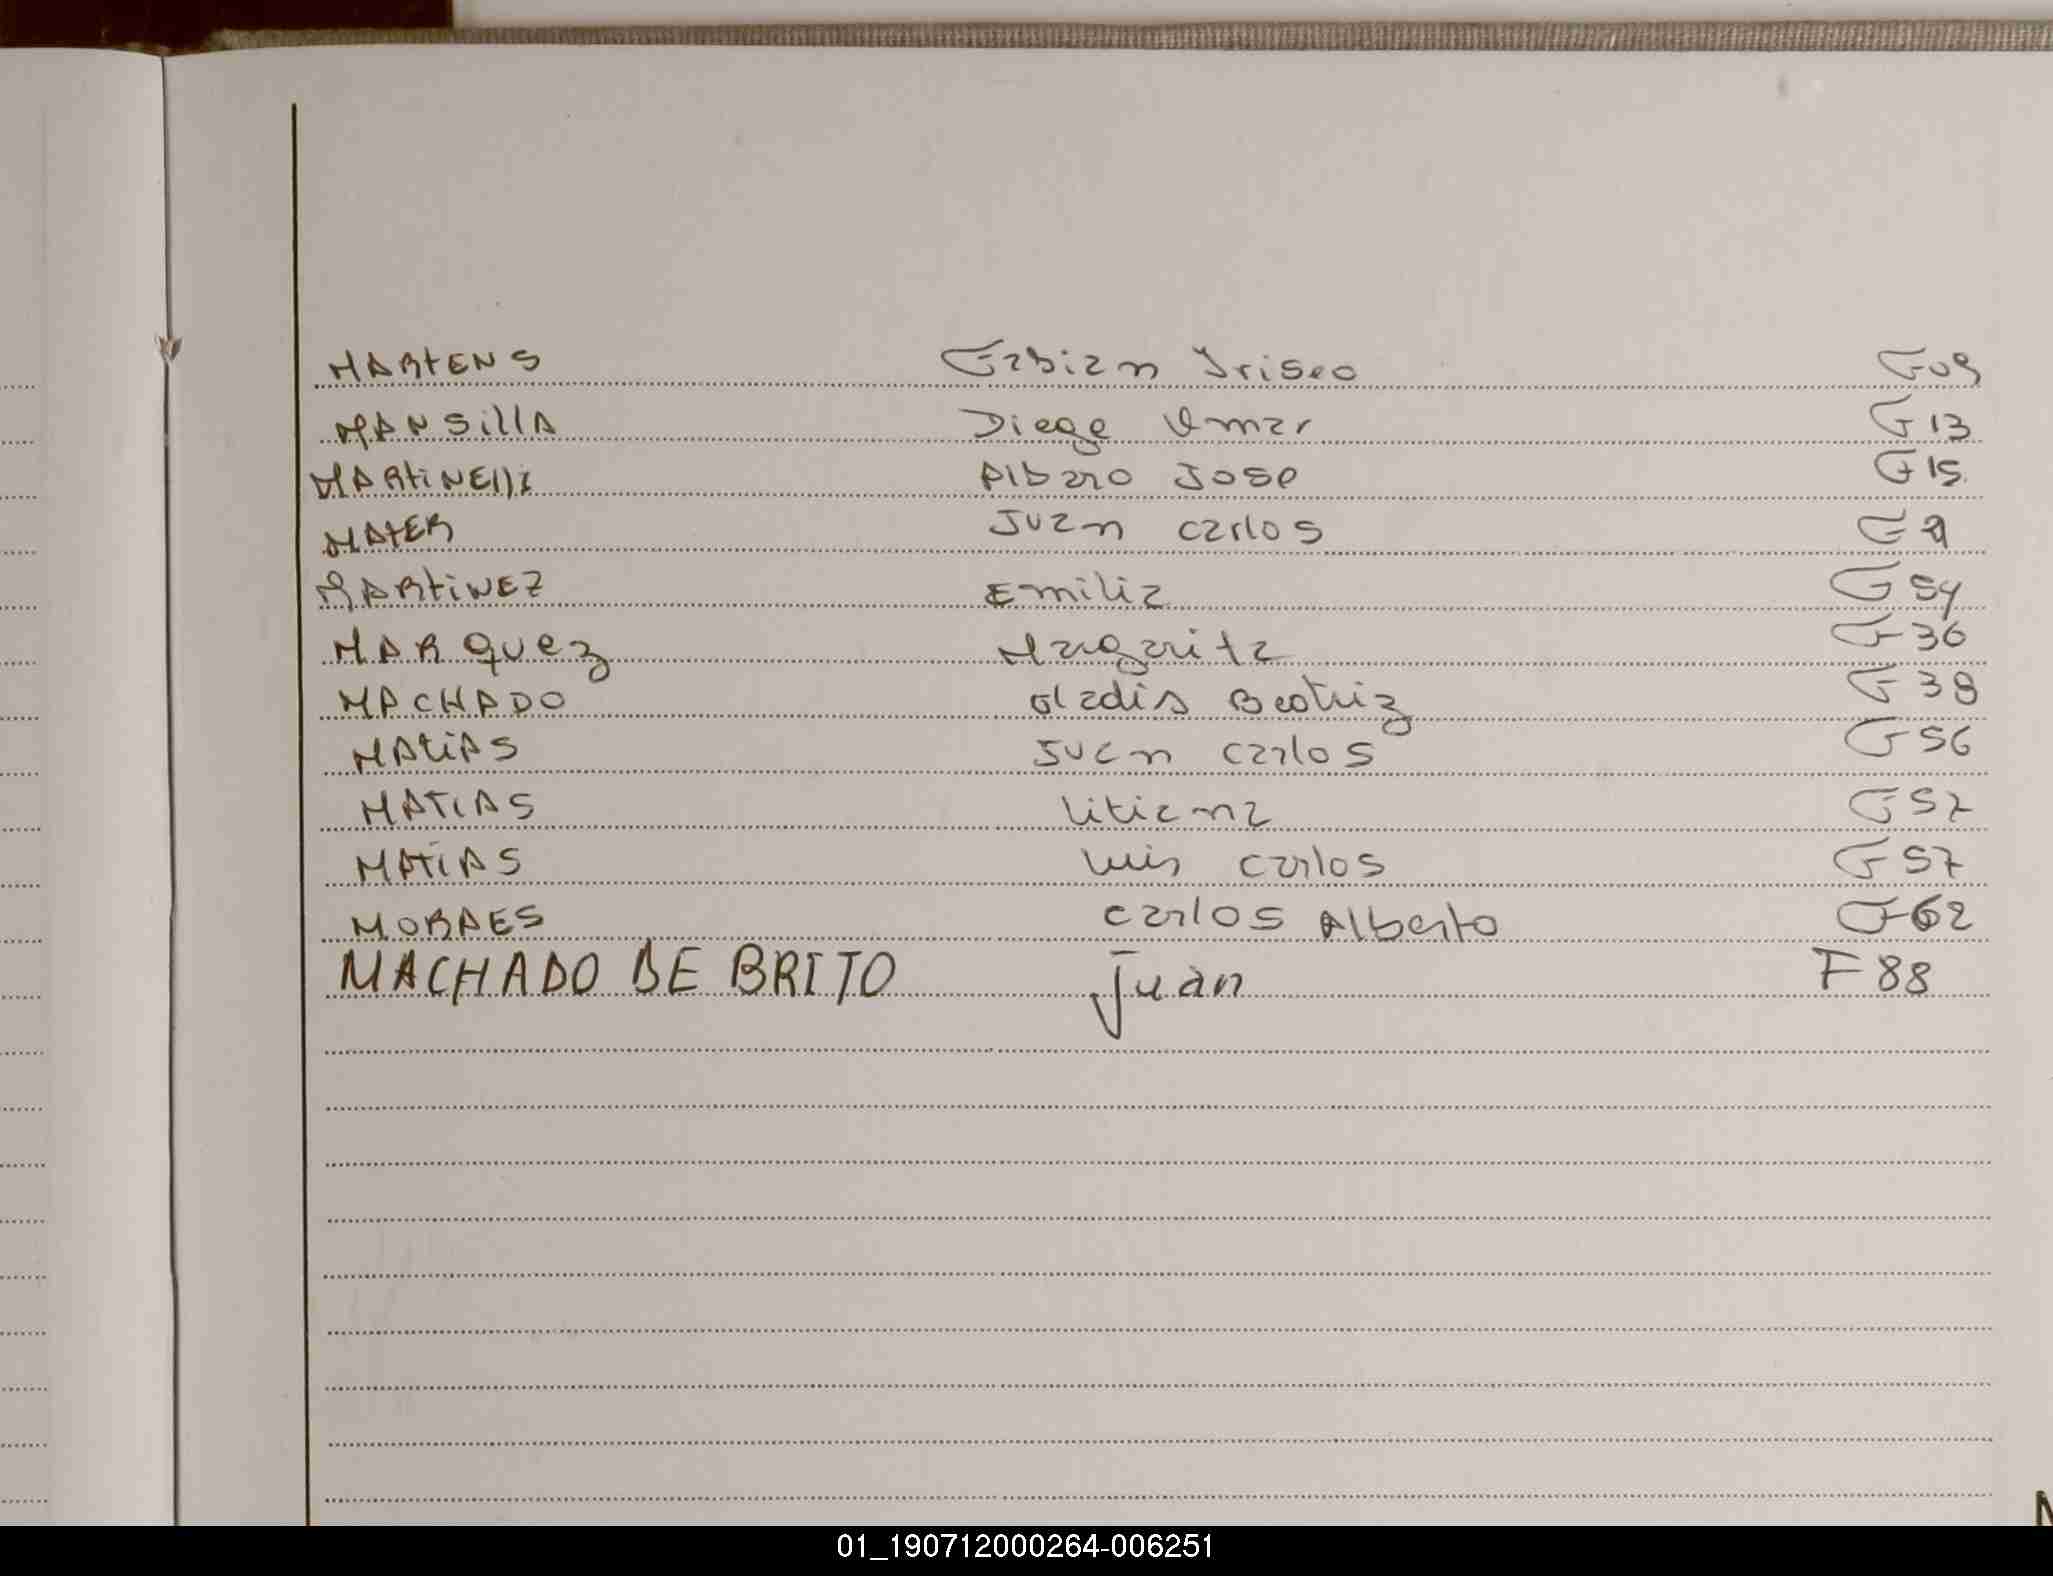 MARTENS Fabian Iriseo F09
MANSillA Diego Omar F13
MARtiNElli Albaro Jose F15
MAtER Juan Carlos F
MARtiNEZ Emilia F54
MARquez Margarita F36
MACHADO Gladis Beatriz F38
MAtiAS Juan Carlos F56
MATIAS Litiana F57
MATiAS Luis Carlos F57
MORAES Carlos Alberto F62
MACHADO DE BRITO Juan F88
01_190712000264-006251